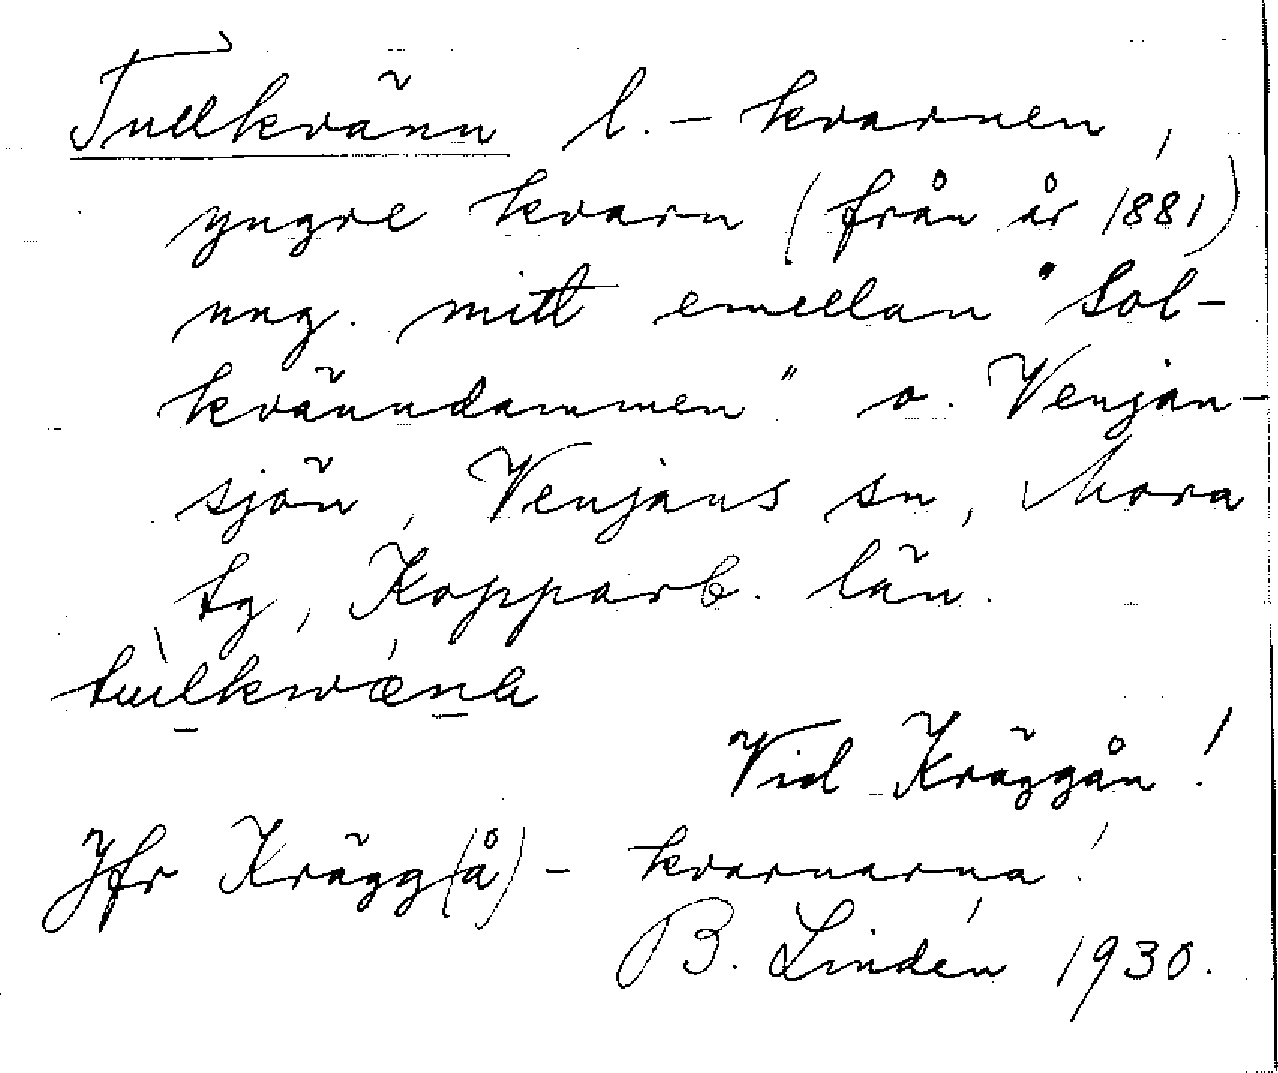 Tullkvänn l. - kvarnen,
yngre kvarn (från år 1881)
ung. mitt emellan "Sol-
kvänndammen" o. Venjan-
sjön, Venjans sn, Mora
tg, Kopparb. län.
Vid Kräggån!
Jfr Krägg(å) - kvarnarna!
B. Lindén 1930.